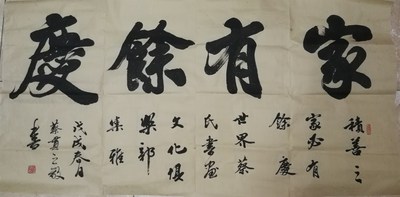 家有餘慶
積善之
家必有
餘慶
世界蔡
氏書畫
文化俱
樂部
集雅
戊戌春月
蔡
書